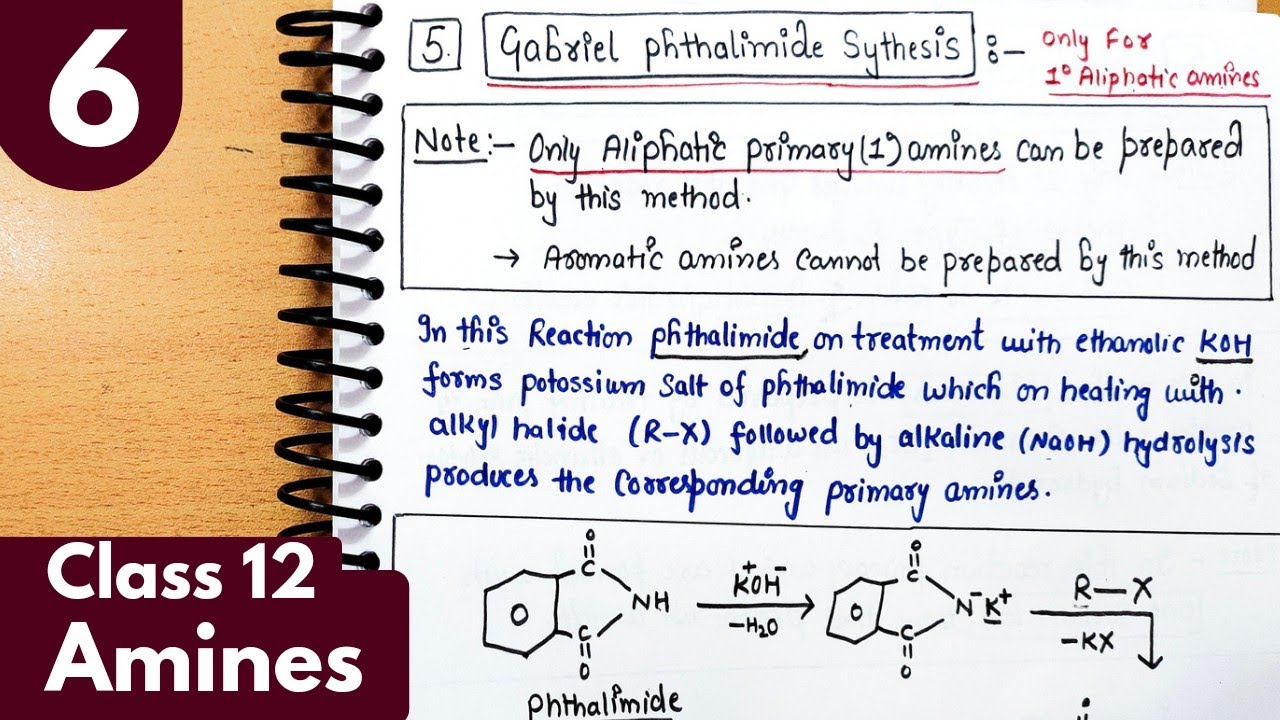 6
5. Gabriel phthalimide Sythesis :- Only For
1° Aliphatic amines
Note:- Only Aliphatic primary(1°) amines can be prepared
by this method.
→ Aromatic amines cannot be prepared by this method
In this Reaction phthalimide on treatment with ethanolic KOH
forms potossium salt of phthalimide which on heating with.
alkyl halide (R-X) followed by alkaline (NaOH) hydrolysis
produces the corresponding primary amines.
O
C
NH
C
O
K⁺OH⁻
-H₂O
O
C
N⁻K⁺
C
O
R-X
-KX
Phthalimide
Class 12
Amines